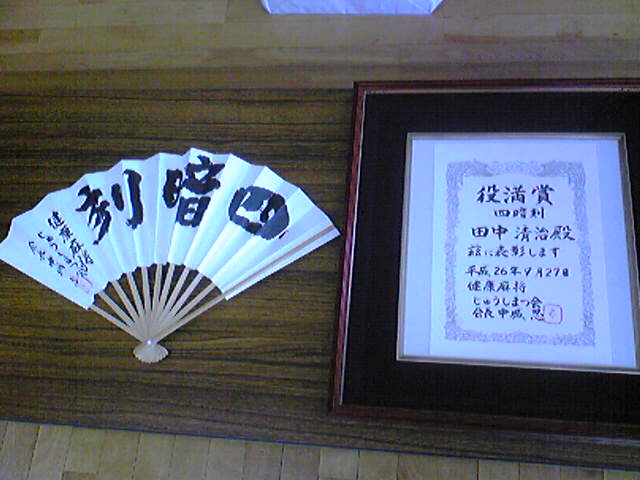 四暗刻
健康麻将
じゅうしまつ会
会長 中城 忍
役満賞
四暗刻
田中 清治殿
茲に表彰します
平成26年9月27日
健康麻将
じゅうしまつ会
会長 中城 忍